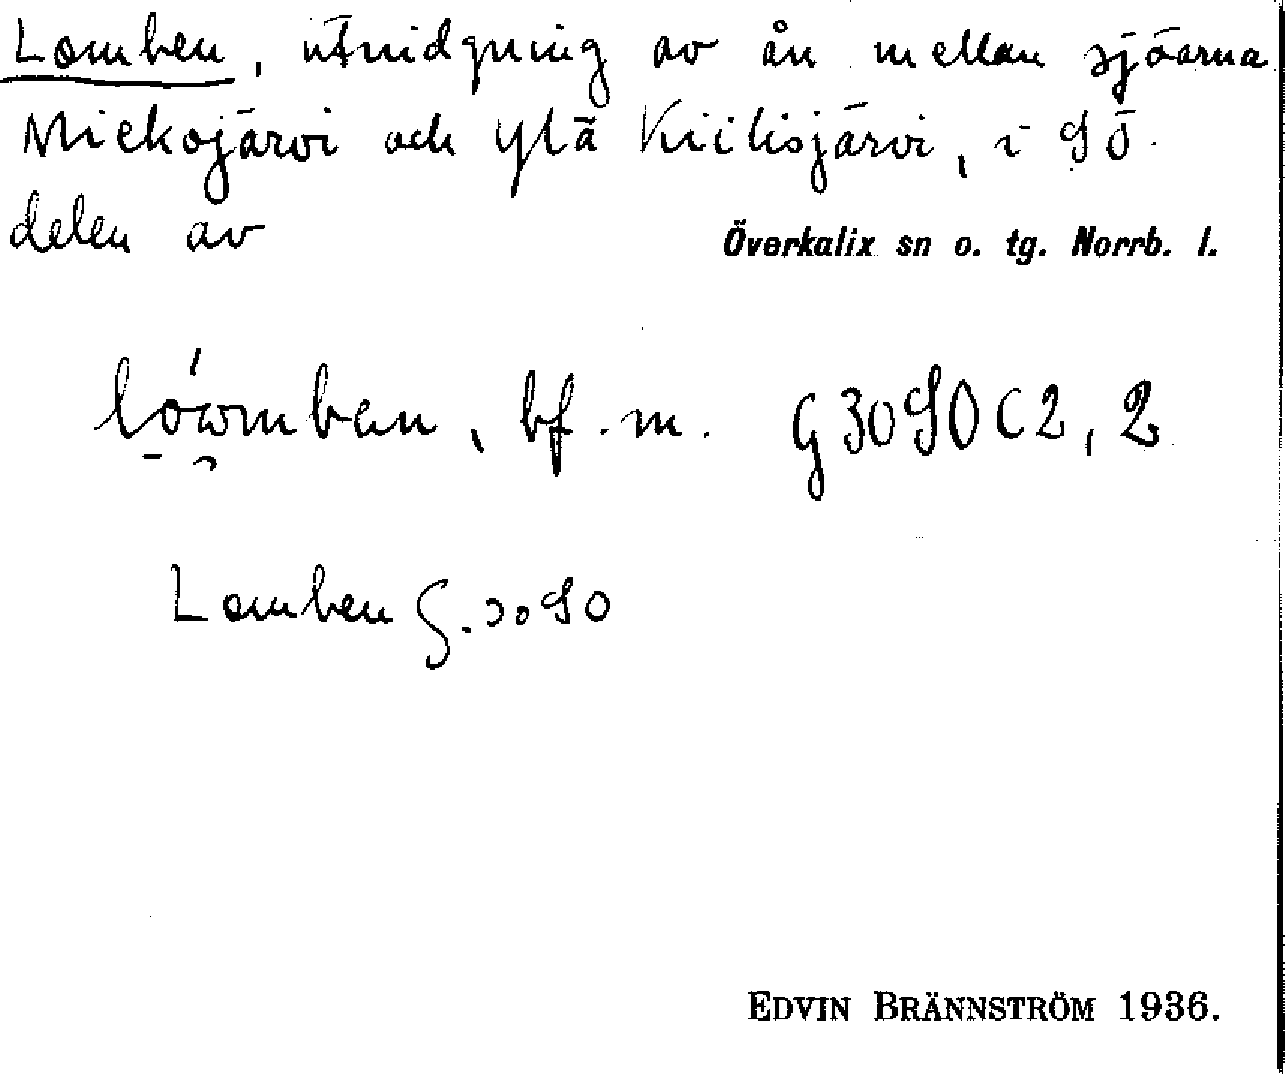 Lomben, utvidgning av ån mellan sjöarna
Miekojärvi och Ylä Kiilisjärvi, i SÖ.
delen av
Överkalix sn o. tg. Norrb. l.
bf. m. G30S0C2, 2
Lomben G. 30S0
EDVIN BRÄNNSTRÖM 1936.